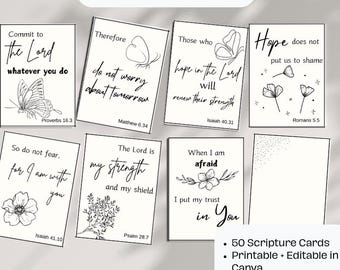 Commit to
the Lord
whatever you do
Proverbs 16:3
Therefore
do not worry
about tomorrow
Matthew 6:34
Those who
hope in the Lord
will
renew their strength
Isaiah 40:31
Hope does not
put us to shame
Romans 5:5
So do not fear,
for I am with
you
Isaiah 41:10
The Lord is
my strength
and my shield
Psalm 28:7
When I am
afraid
I put my trust
in You
• 50 Scripture Cards
• Printable + Editable in
Canva